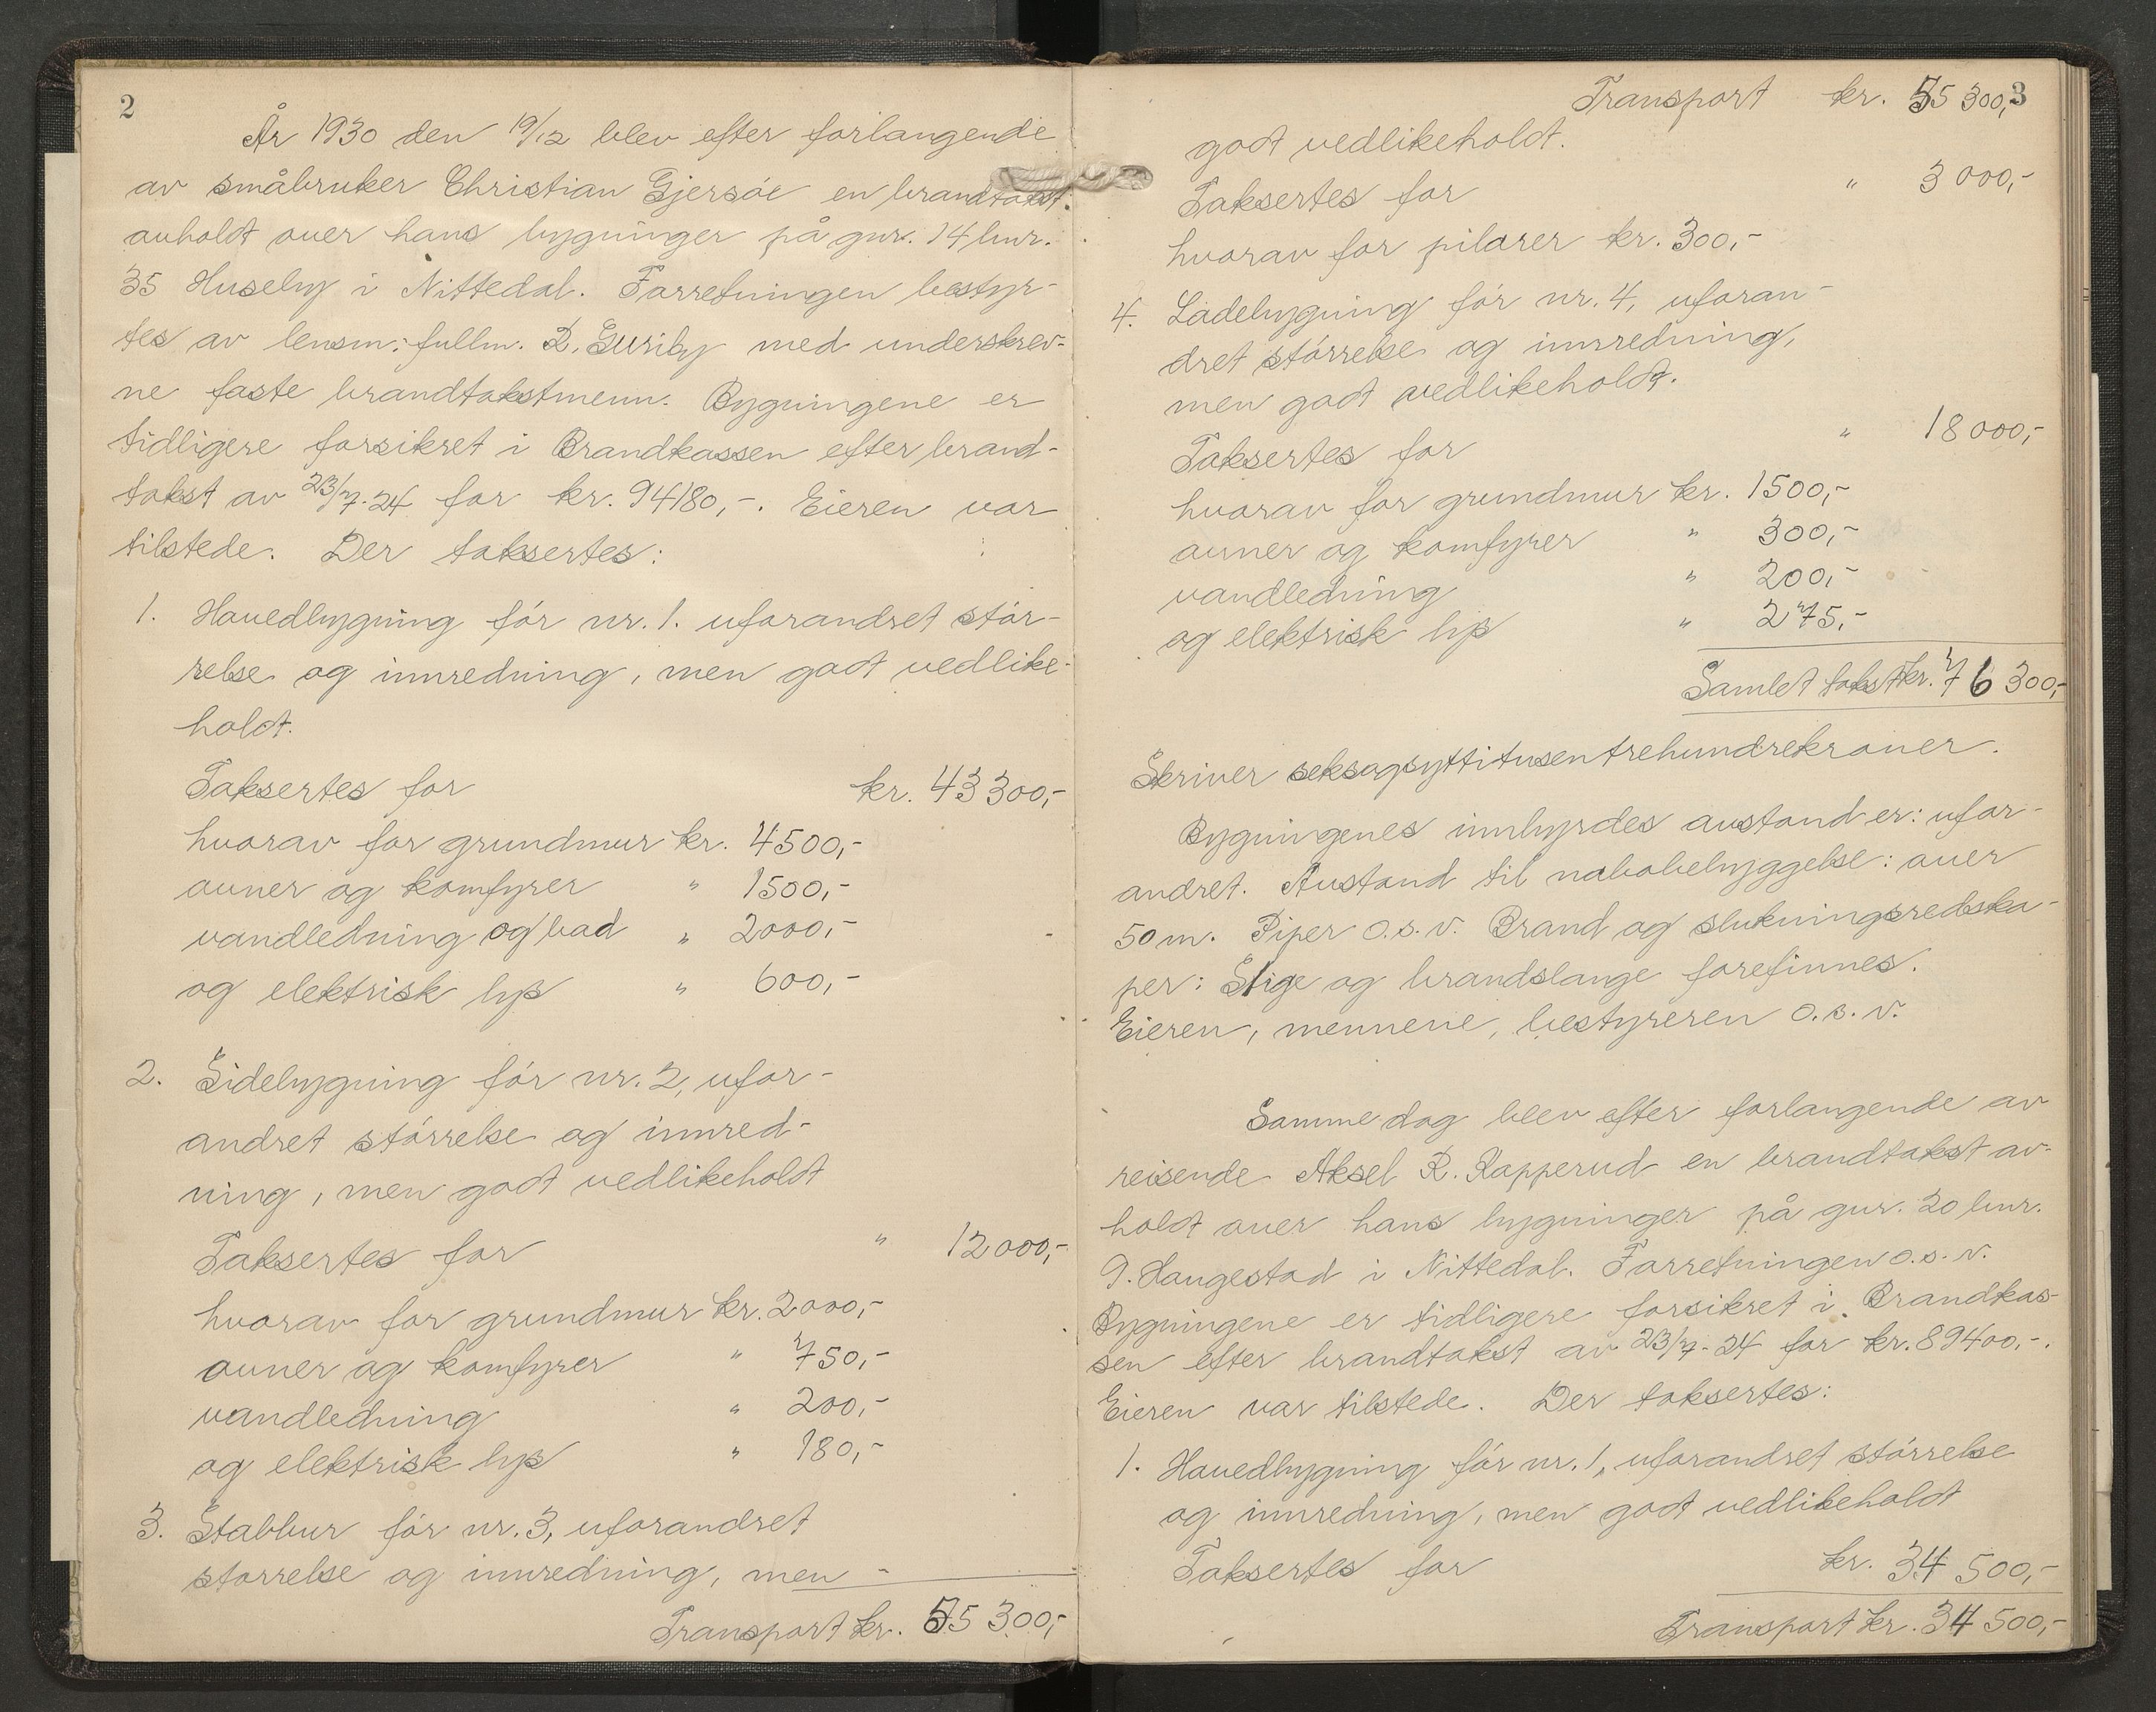 2
År 1930 den 19/12 blev efter forlangende
av småbruker Christian Gjersöe en brandtakst
avholdt over hans bygninger på gnr. 14 bnr.
35 Huseby i Nittedal. Forretningen bestyr-
tes av lensm: fullm. D. Guriby med underskrev-
ne faste brandtakstmenn. Bygningene er
tidligere forsikret i Brandkassen efter brand-
takst av 23/7-24 for kr. 94180,-. Eieren var
tilstede. Der taksertes:
1. Hovedbygning fór nr. 1. uforandret stór-
relse og innredning, men godt vedlike-
holdt.
Taksertes for kr. 43300,-
hvorav for grundmur kr. 4500,-
ovner og komfyrer " 1500,-
vandledning og bad " 2000,-
og elektrisk lys " 600,-
2. Sidebygning fór nr. 2, ufor-
andret stórrelse og innred-
ning, men godt vedlikeholdt
Taksertes for " 12000,-
hvorav for grundmur kr. 2000,-
ovner og komfyrer " 750,-
vandledning " 200,-
og elektrisk lys " 180,-
3. Stabbur fór nr. 3, uforandret
storrelse og innredning, men -
Transport kr. 55300,-
3
Transport kr. 55300,-
godt vedlikeholdt.
Taksertes for " 3000,-
hvorav for pilarer kr. 300,-
4. Ladebygning fór nr. 4, uforan-
dret stórrelse og innredning,
men godt vedlikeholdt.
Taksertes for " 18000,-
hvorav for grundmur kr. 1500,-
ovner og komfyrer " 300,-
vandledning " 200,-
og elektrisk lys " 275,-
Samlet takst kr. 76300,-
Skriver seksogsyttitusentrehundrekroner.
Bygningenes innbyrdes avstand er: ufor-
andret. Avstand til nabobebyggelse: over
50 m. Piper o.s.v. Brand og slukningsredska-
per: Stige og brandslange forefinnes.
Eieren, mennene, bestyreren o.s.v.
Samme dag blev efter forlangende av
reisende Aksel R. Rapperud en brandtakst av-
holdt over hans bygninger på gnr. 20 bnr.
9. Haugestad i Nittedal. Forretningen o.s.v.
Bygningene er tidligere forsikret i Brandkas-
sen efter brandtakst av 23/7-24 for kr. 89400,-.
Eieren var tilstede. Der taksertes:
1. Hovedbygning fór nr. 1, uforandret stórrelse
og innredning, men godt vedlikeholdt
Taksertes for kr. 34500,-
Transport kr. 34500,-